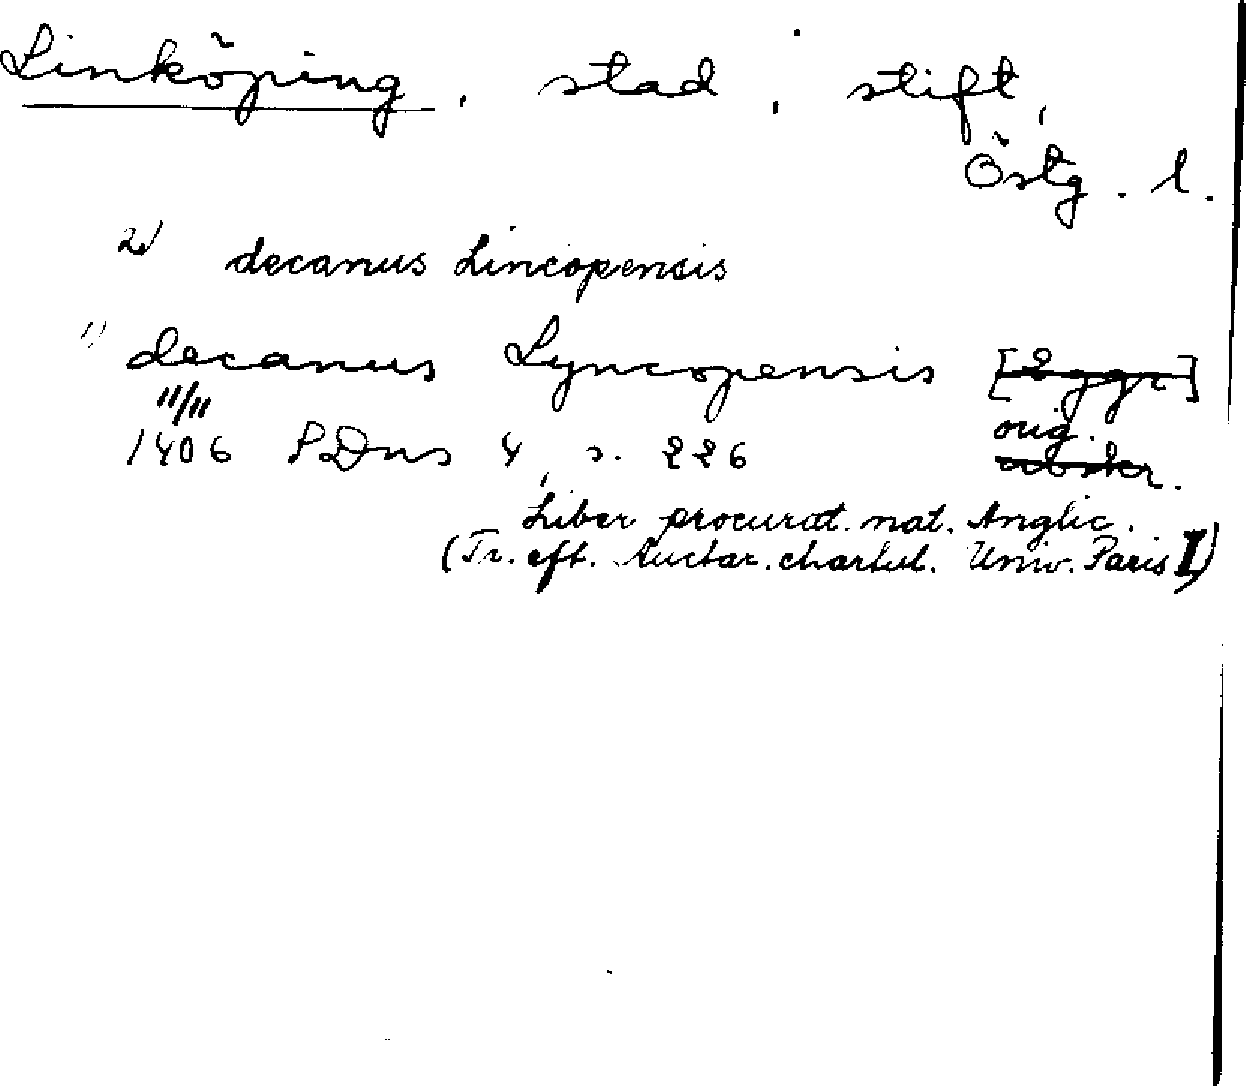 Linköping, stad, stift,
Östg. l.
2) decanus Lincopensis
1) decanus Lyncopensis [2 ggr]
11/11 orig.
1406 SDns 4, s. 226 avskr.
Liber procurat. nat. Anglic.
(Tr. eft. Auctar. chartul. Univ. Paris I)